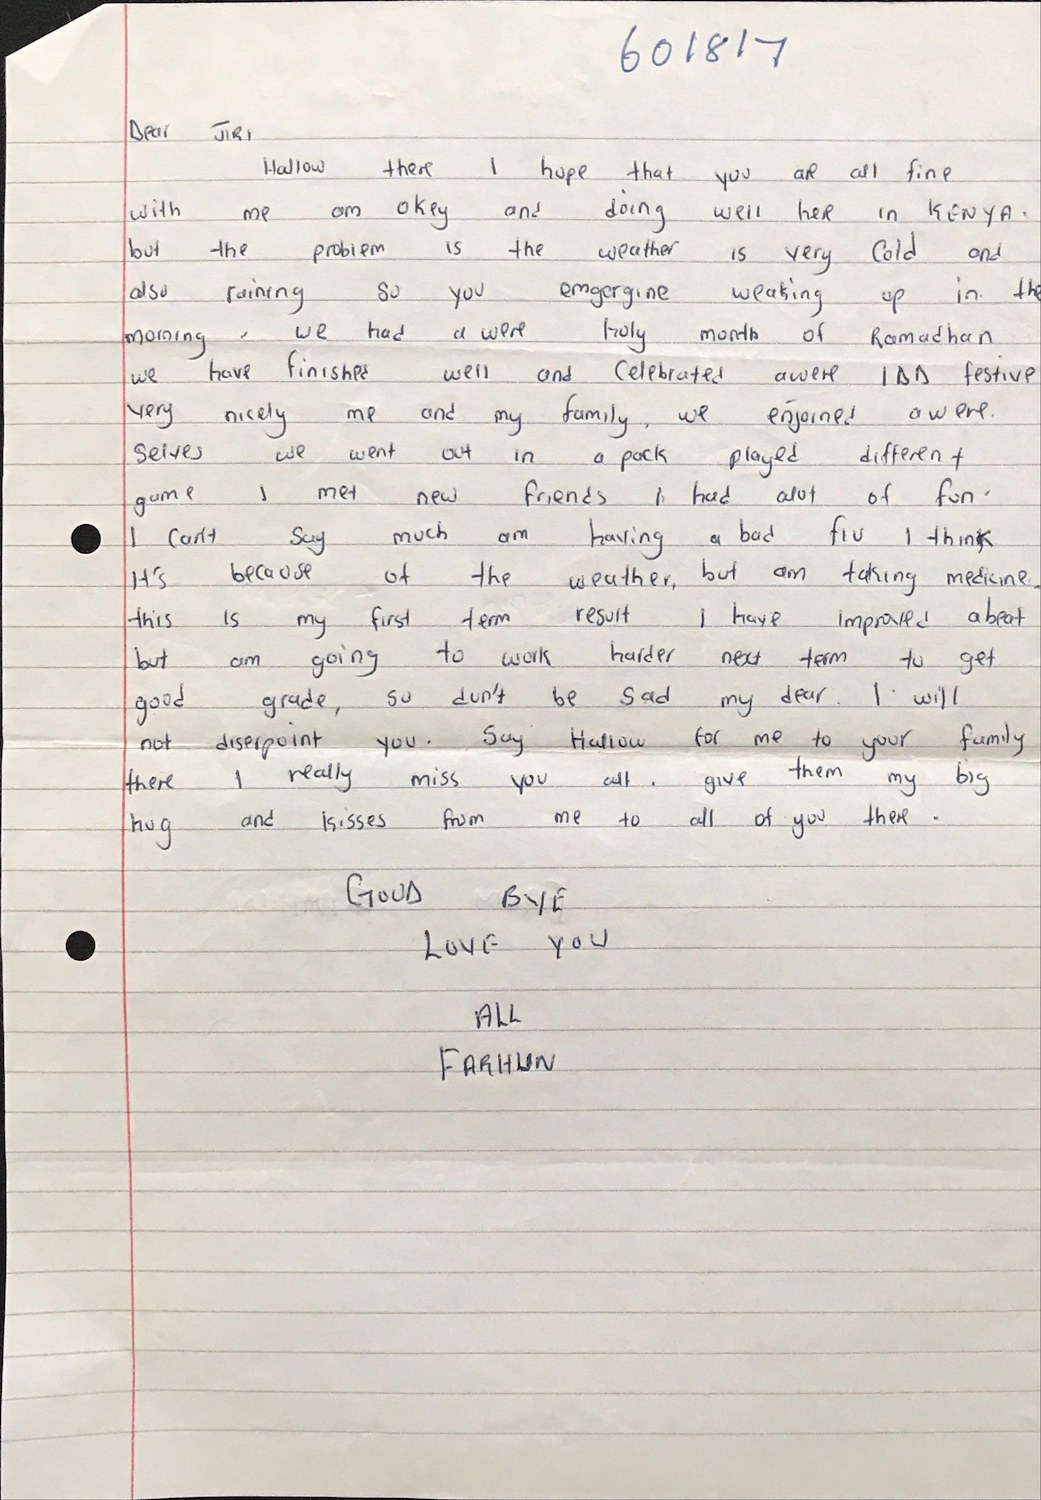 601817
Dear JIRI
Hallow there I hope that you are all fine
with me am okey and doing well here in KENYA.
but the problem is the weather is very Cold and
also raining so you emgergine weaking up in the
morning, we had a were holy month of Ramadhan
we have finished well and Celebrated awere IDD festive
very nicely me and my family, we enjoined awere.
Selves we went out in a pack played different
game I met new friends I had alot of fun.
I can't Say much am having a bad flu I think
It's because of the weather, but am taking medicine.
this is my first term result I have improved abeat
but am going to work harder next term to get
good grade, so don't be Sad my dear. I will
not diserpoint you. Say Hallow for me to your family
there I really miss you all. give them my big
hug and kisses from me to all of you there.
GOOD BYE
LOVE YOU
ALL
FARHUN